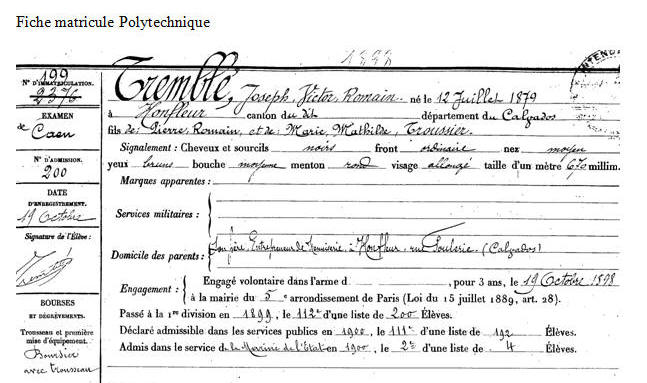 Fiche matricule Polytechnique
1898
199
N° D'IMMATRICULATION.
2376
EXAMEN
de Caen
N° D'ADMISSION.
200
DATE
D'ENREGISTREMENT.
19 Octobre
Signature de l'Élève :
BOURSES
ET DÉGRÈVEMENTS.
Trousseau et première
mise d'équipement.
Boursier
avec trousseau
INTEND
Tremblé, Joseph, Victor, Romain né le 12 Juillet 1879
à Honfleur canton du dit département du Calvados
fils de Pierre, Romain, et de Marie, Mathilde, Troussier.
Signalement : Cheveux et sourcils noirs front ordinaire nez moyen
yeux bruns bouche moyenne menton rond visage allongé taille d'un mètre 670 millim.
Marques apparentes :
Services militaires :
Domicile des parents : Son père, Entrepreneur de Menuiserie, à Honfleur, rue (Calvados)
Engagement : Engagé volontaire dans l'arme d , pour 3 ans, le 19 Octobre 1898
à la mairie du 5e arrondissement de Paris (Loi du 15 juillet 1889, art. 28).
Passé à la 1re division en 1899, le 112e d'une liste de 200 Élèves.
Déclaré admissible dans les services publics en 1900, le 111e d'une liste de 192 Élèves.
Admis dans le service de la Marine de l'État en 1900, le 2e d'une liste de 4 Élèves.